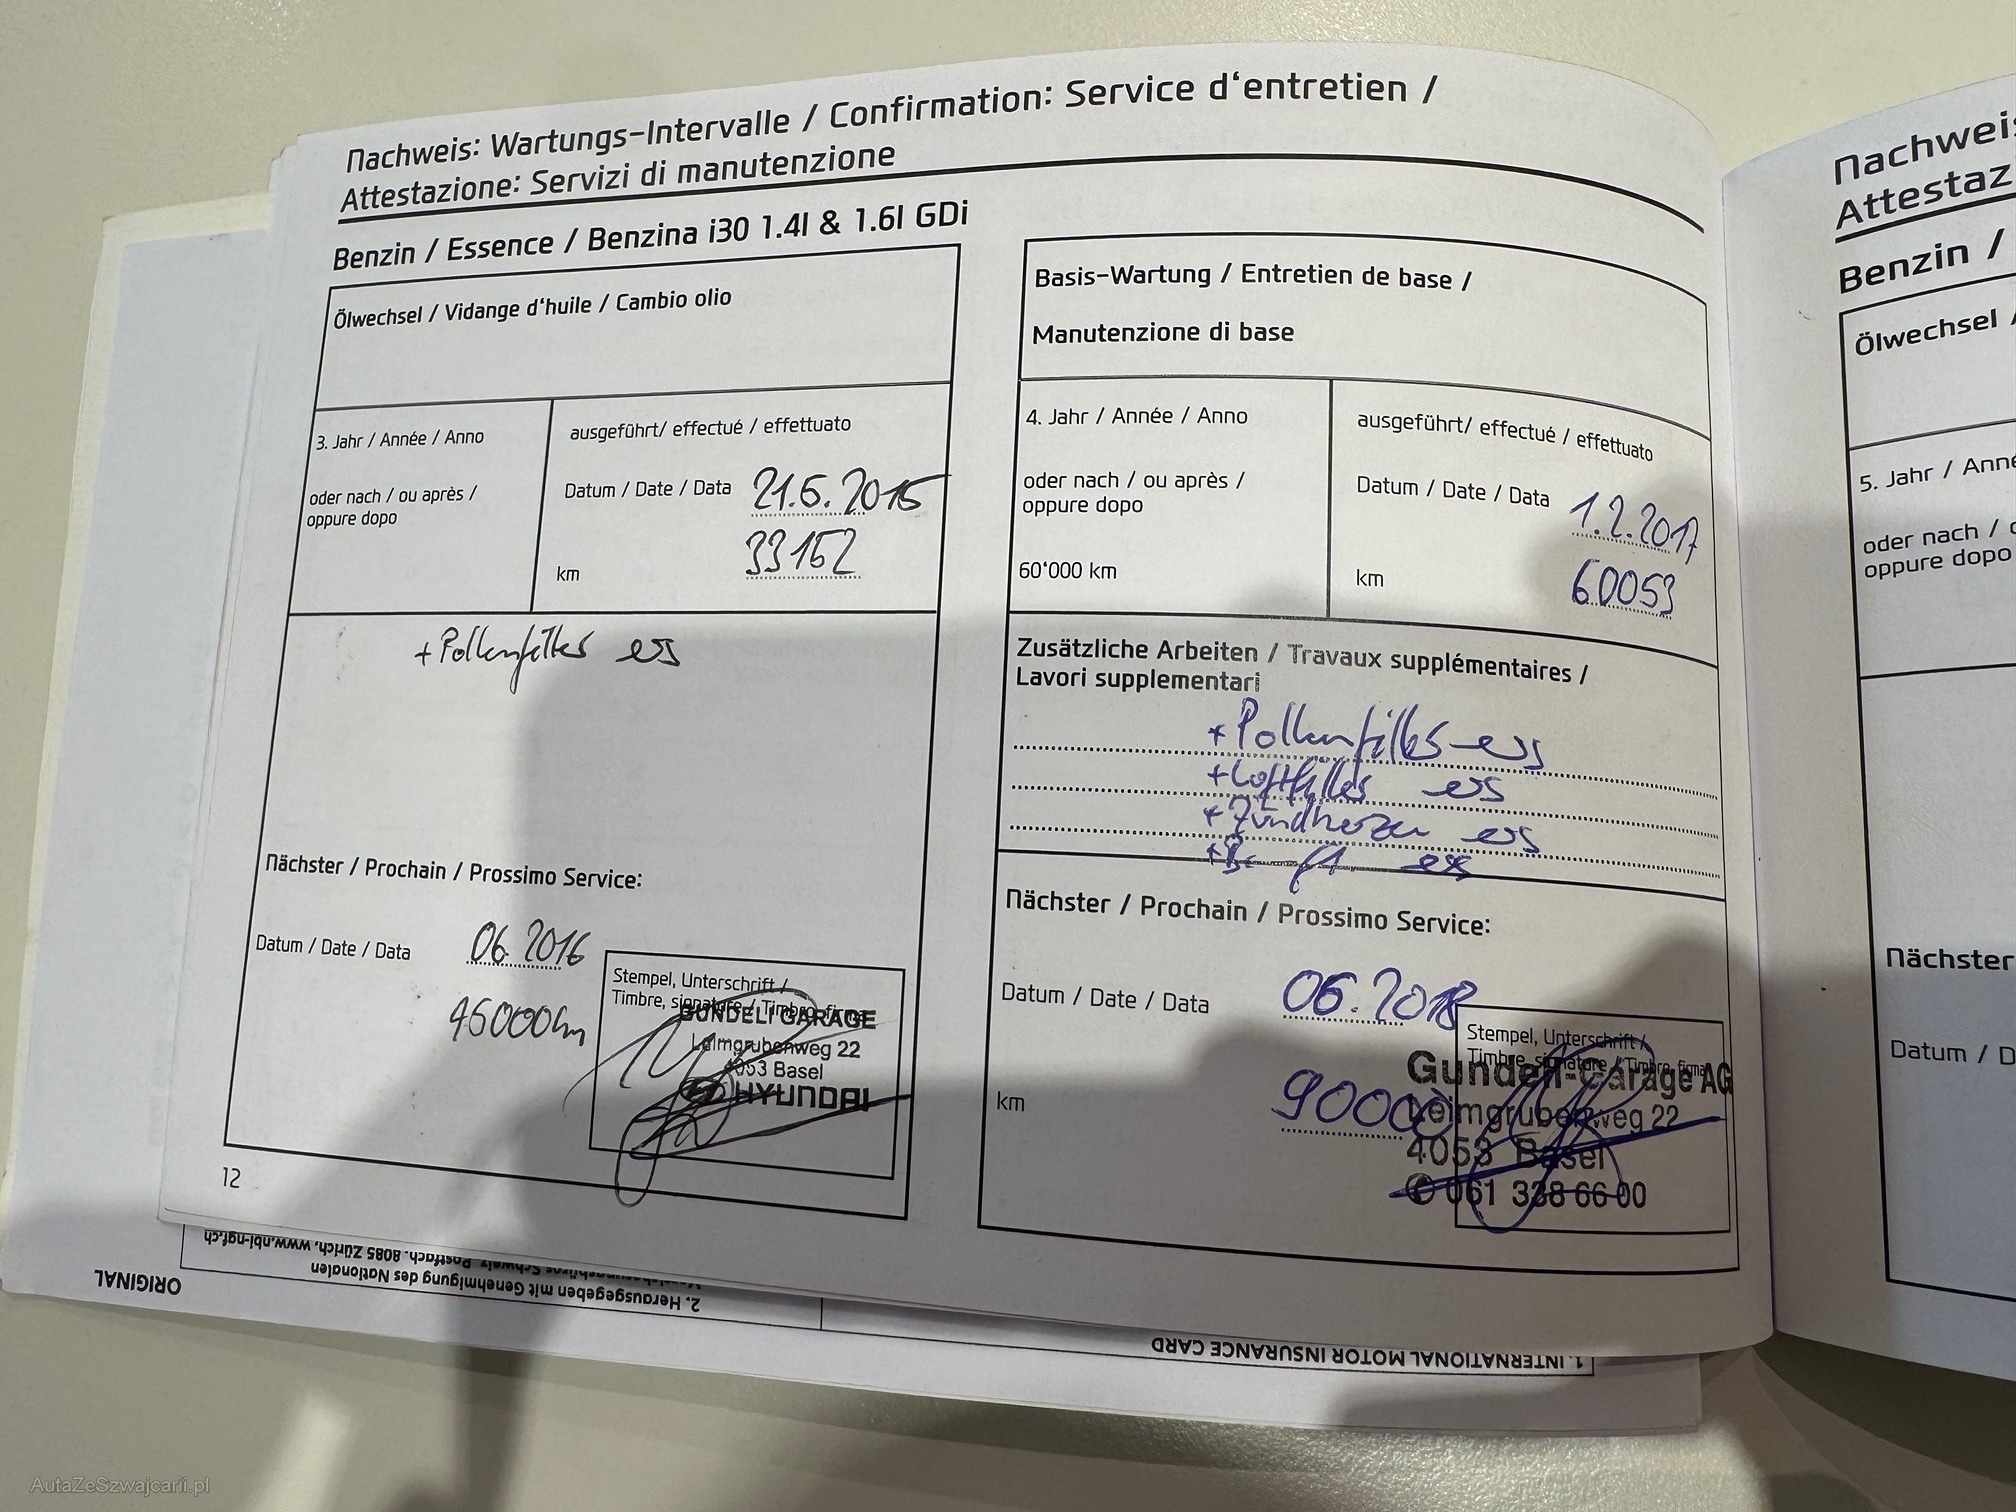 Nachweis: Wartungs-Intervalle / Confirmation: Service d'entretien /
Attestazione: Servizi di manutenzione
Benzin / Essence / Benzina i30 1.4l & 1.6l GDi
Ölwechsel / Vidange d'huile / Cambio olio
3. Jahr / Année / Anno
ausgeführt/ effectué / effettuato
oder nach / ou après /
oppure dopo
Datum / Date / Data 21.6.2015
km 33152
+Pollenfilter ers
Nächster / Prochain / Prossimo Service:
Datum / Date / Data 06.2016
45000km
Stempel, Unterschrift /
Timbre, signature / Timbro, firma
GUNDELI GARAGE
Leimgrubenweg 22
4053 Basel
HYUNDAI
12
Basis-Wartung / Entretien de base /
Manutenzione di base
4. Jahr / Année / Anno
ausgeführt/ effectué / effettuato
oder nach / ou après /
oppure dopo
Datum / Date / Data 1.2.2017
60'000 km
km 60053
Zusätzliche Arbeiten / Travaux supplémentaires /
Lavori supplementari
+Pollenfilter ers
+Luftfilter ers
+Zündkerzen ers
ers
Nächster / Prochain / Prossimo Service:
Datum / Date / Data 06.2018
km 90000
Stempel, Unterschrift /
Timbre, signature / Timbro, firma
Gundeli-Garage AG
Leimgrubenweg 22
4053 Basel
✆ 061 338 66 00
Nachweis
Attestaz
Benzin /
Ölwechsel /
5. Jahr / Anné
oder nach / o
oppure dopo
Nächster
Datum / D
ORIGINAL
2. Herausgegeben mit Genehmigung des Nationalen
Versicherungsbüros Schweiz, Postfach, 8085 Zürich, www.nbi-ngf.ch
1. INTERNATIONAL MOTOR INSURANCE CARD
AutaZeSzwajcarii.pl